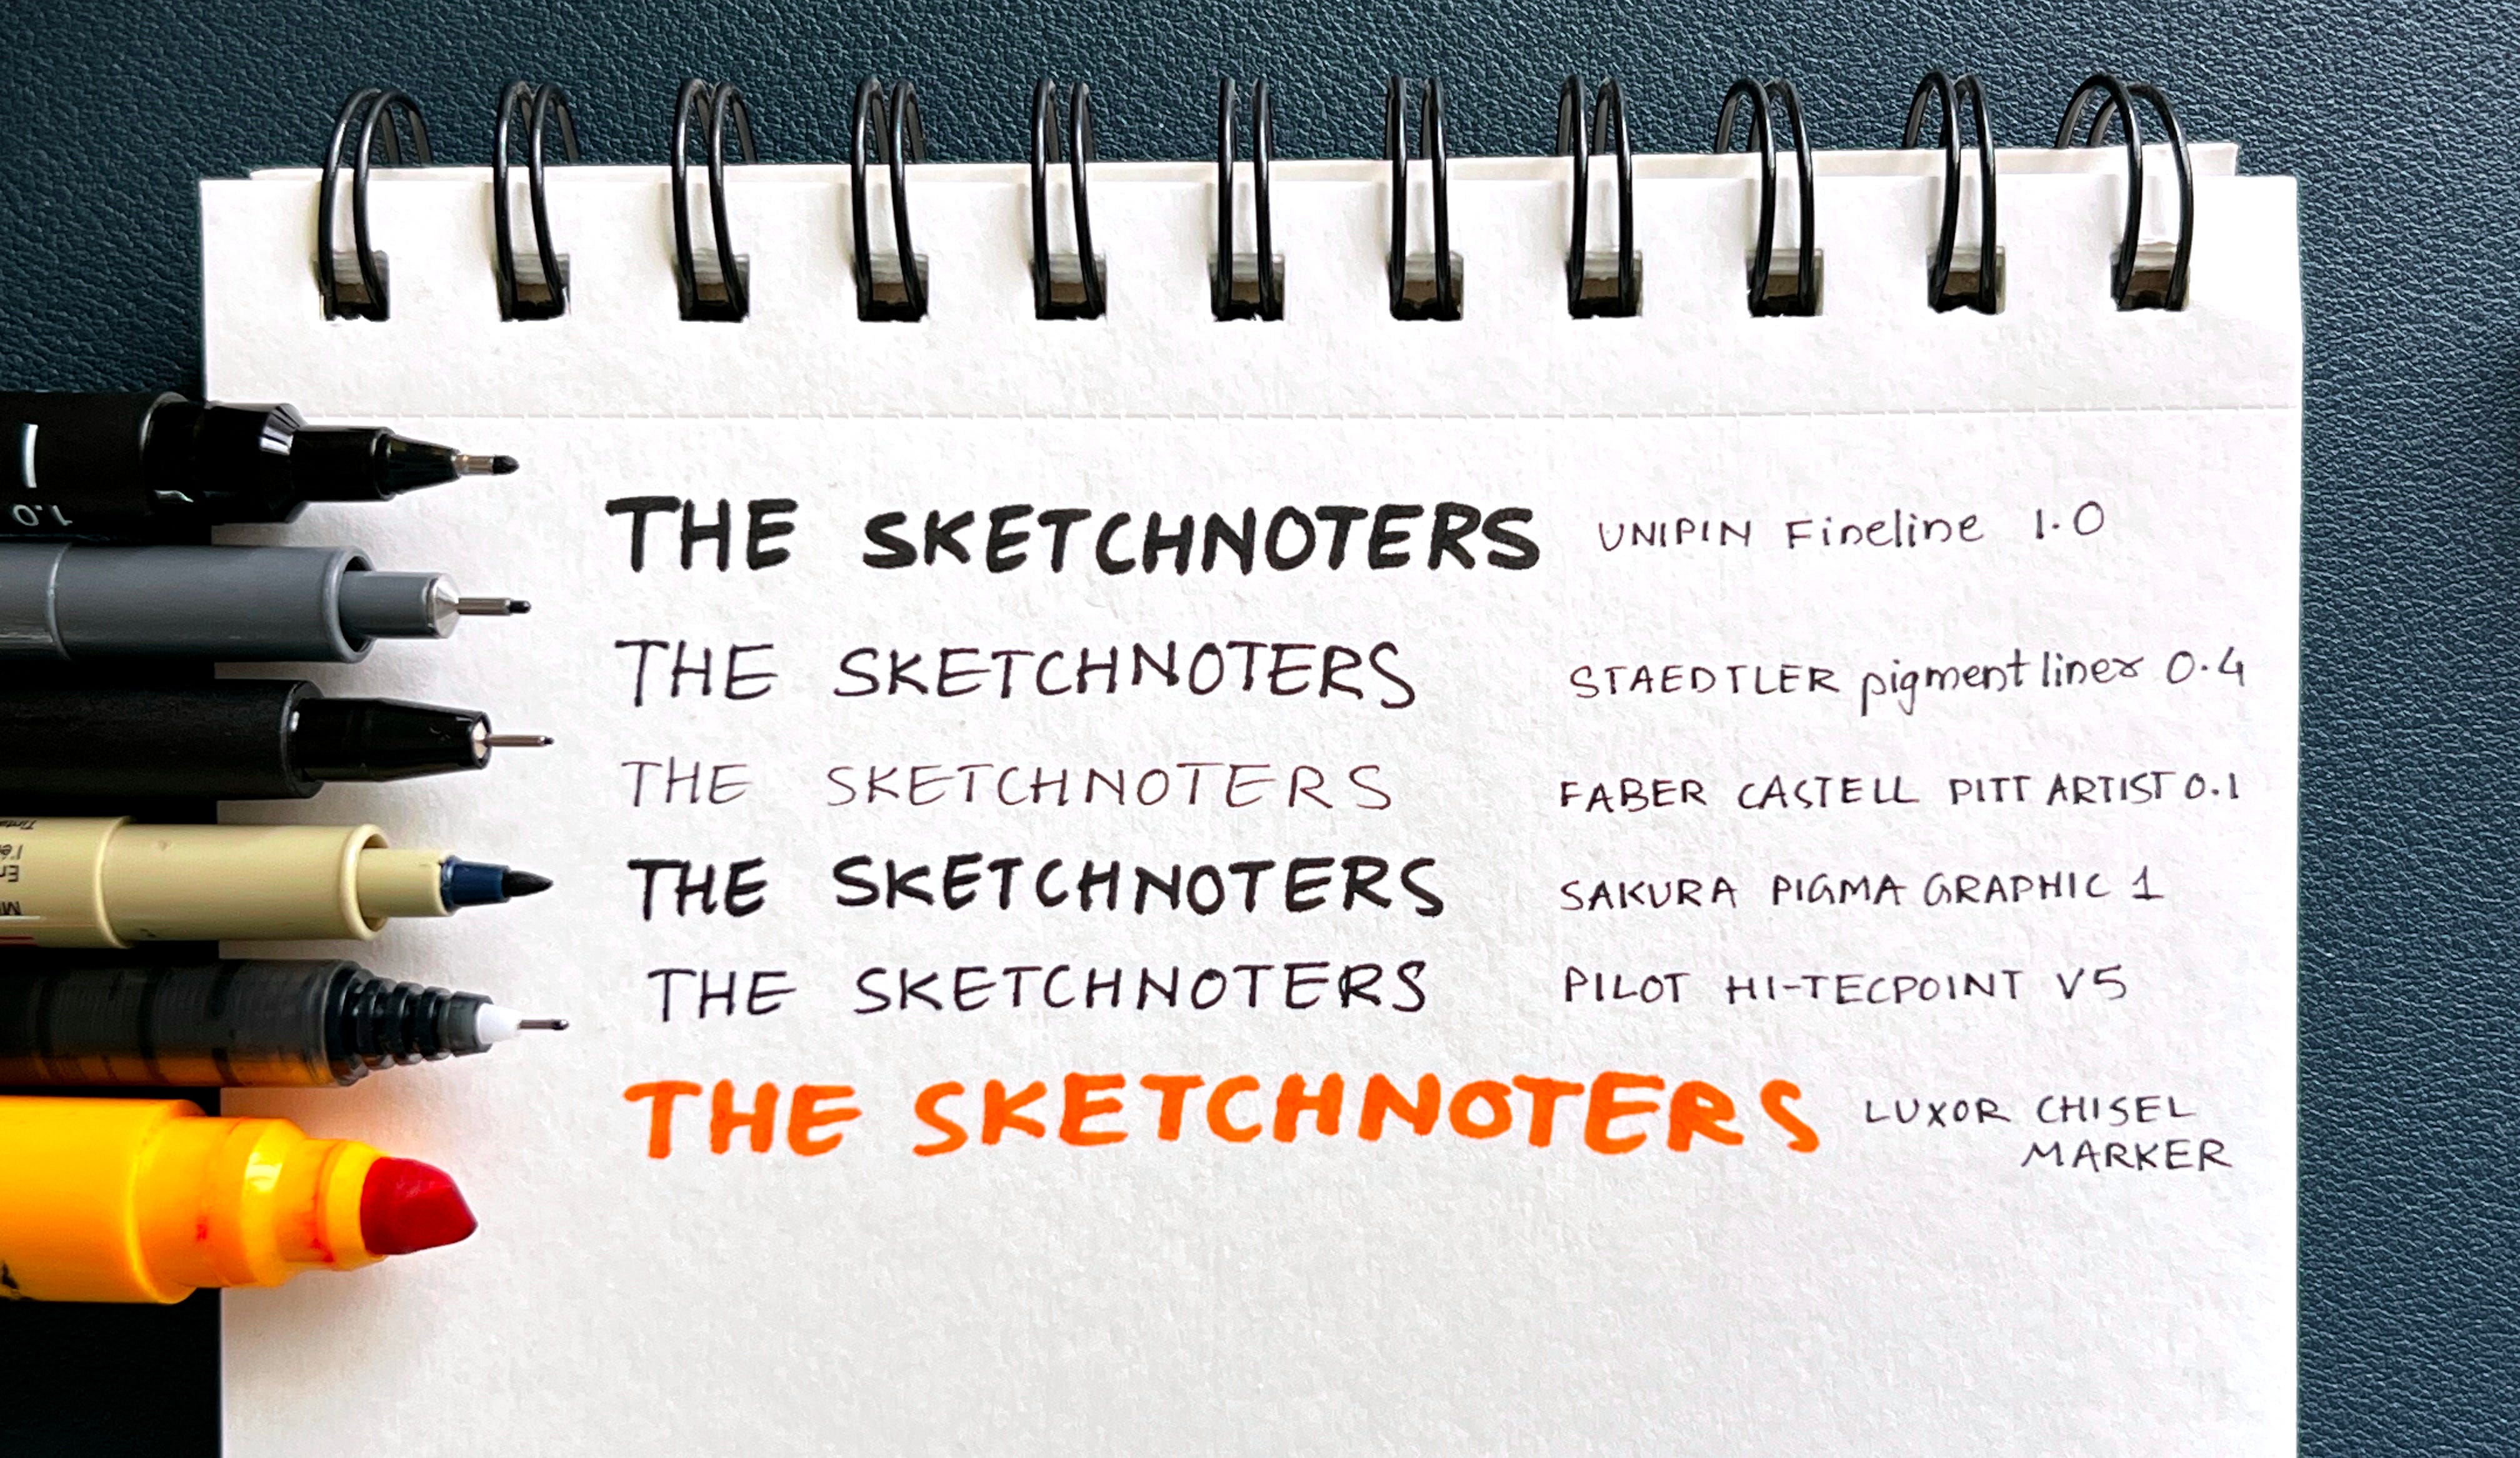 THE SKETCHNOTERS UNIPIN Fineline 1.0
THE SKETCHNOTERS STAEDTLER pigment liner 0.4
THE SKETCHNOTERS FABER CASTELL PITT ARTIST 0.1
THE SKETCHNOTERS SAKURA PIGMA GRAPHIC 1
THE SKETCHNOTERS PILOT HI-TECPOINT V5
THE SKETCHNOTERS LUXOR CHISEL
MARKER
1.0